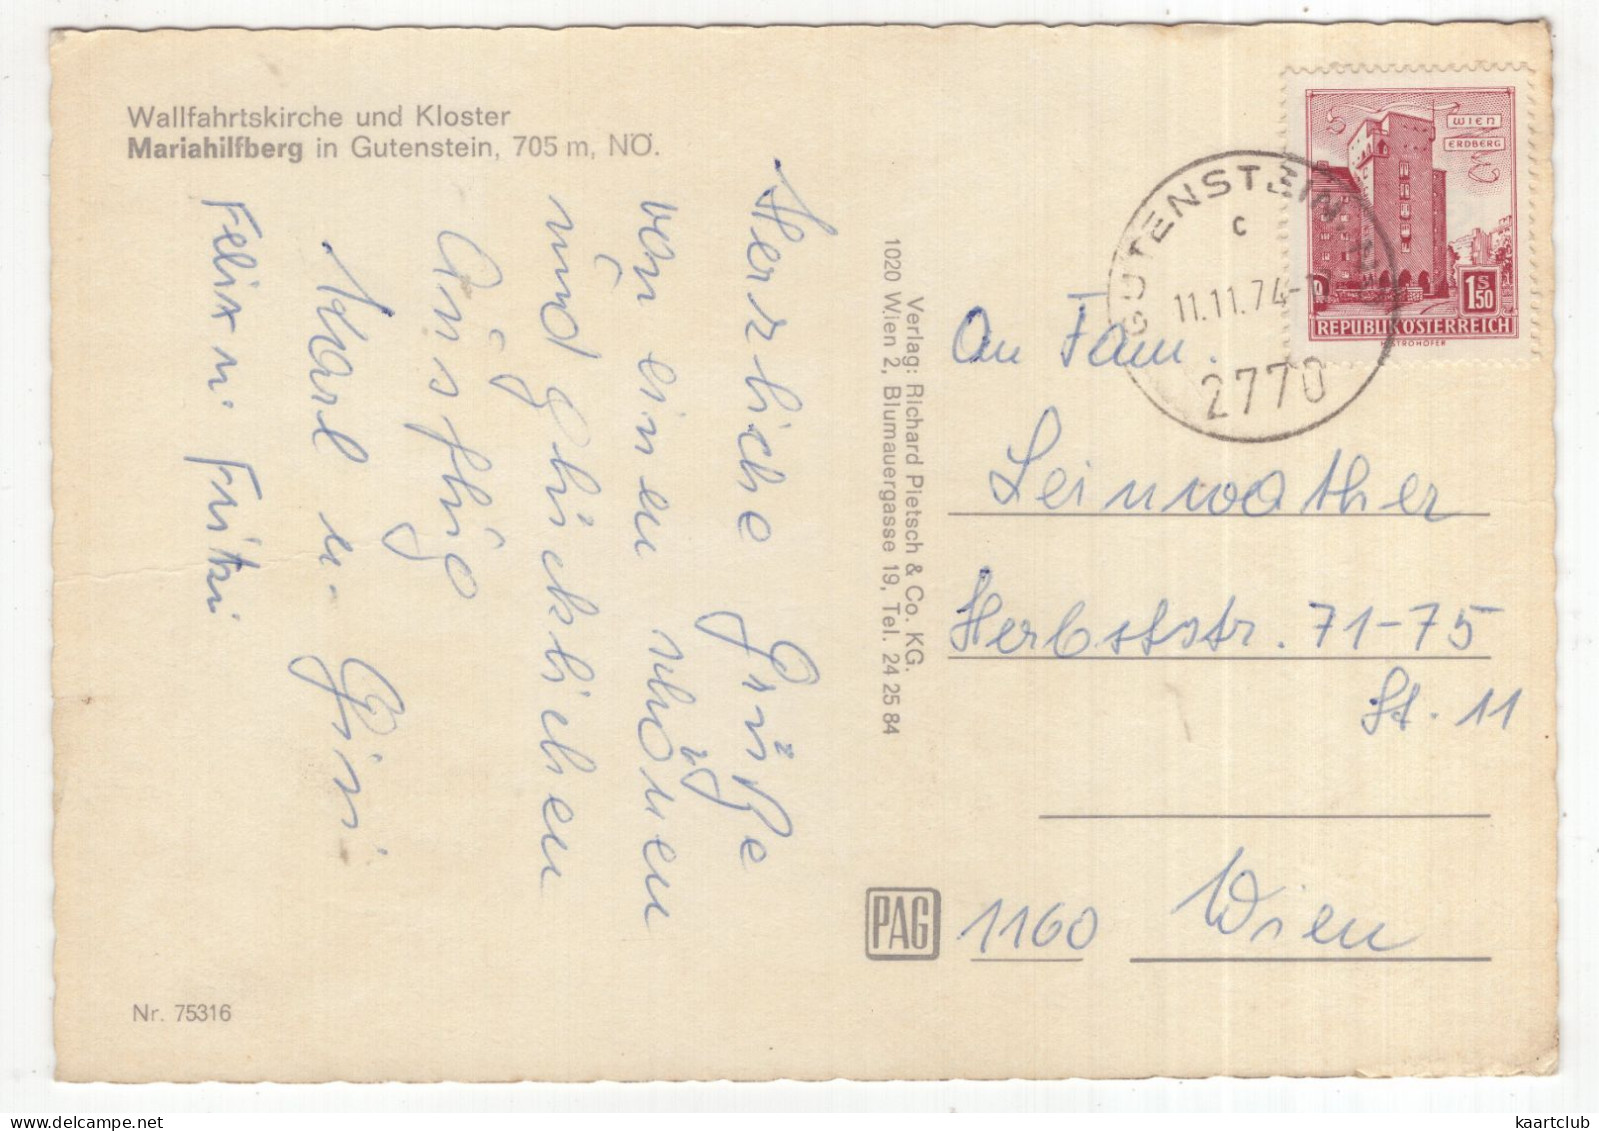 Wallfahrtskirche und Kloster
Mariahilfberg in Gutenstein, 705 m, NÖ.
Herzliche Grüße
von einen schönen
und glücklichen
Ausflug
Karl u. Gini
Felix u. Fritzi
Nr. 75316
Verlag: Richard Pietsch & Co. KG.
1020 Wien 2, Blumauergasse 19, Tel. 24 25 84
PAG
WIEN
ERDBERG
1 S 50
REPUBLIK ÖSTERREICH
GUTENSTEIN
c
11.11.74
2770
An Fam.
Leinwather
Herbststr. 71-75
St. 11
1160 Wien
kaartclub